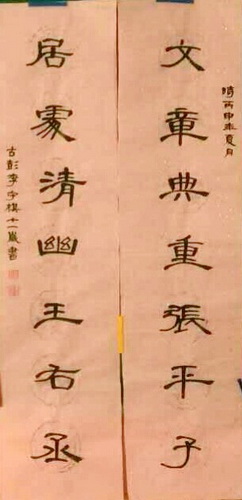 時丙申年夏月
文章典重張平子
居處清幽王右丞
古彭李宇棋十一歲書